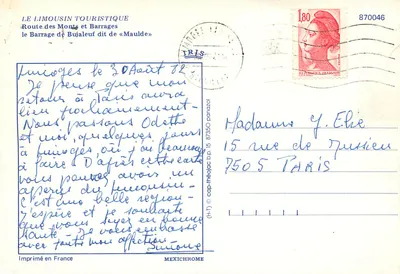 LE LIMOUSIN TOURISTIQUE
Route des Monts et Barrages
le Barrage de Bujaleuf dit de «Maulde»
870046
1,80
IRIS
Limoges le 30 Août 82
Je pense que mon
retour à Paris aura
lieu prochainement -
Nous passons Odette
et moi, quelques jours
à Limoges, où j'ai beaucoup
à faire. D'après cette carte
vous pouvez avoir un
aperçu du Limousin -
C'est une belle région -
J'espère et je souhaite
que vous soyez en bonne
santé - Je vous embrasse
avec toute mon affection
Simone
Madame Y. Elie
15 rue de
75005 PARIS
cap-théojac b.p. 16 87350 panazol
Imprimé en France
MEXICHROME